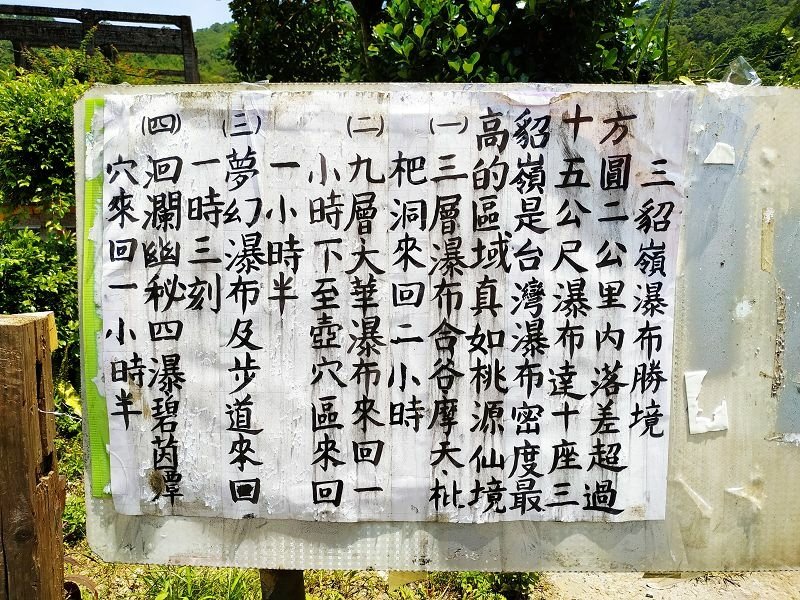 三貂嶺瀑布勝境
方圓二公里內落差超過
十五公尺瀑布達十座三
貂嶺是台灣瀑布密度最
高的區域真如桃源仙境
㈠三層瀑布合谷摩天、枇
杷洞來回二小時
㈡九層、大華瀑布來回一
小時下至壺穴區來回
一小時半
㈢夢幻瀑布及步道來回
一時三刻
㈣洄瀾幽秘四瀑碧茵潭
穴來回一小時半